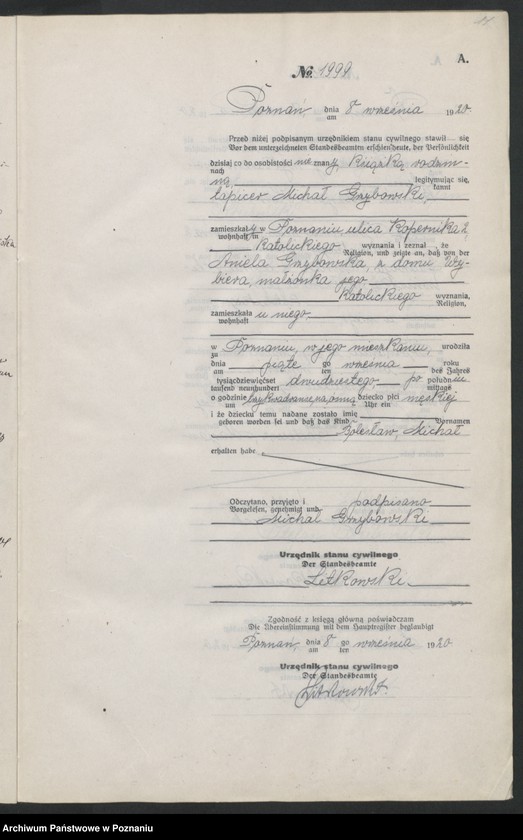 A.
№ 1999
Poznań, dnia 8 września 1920.
am
Przed niżej podpisanym urzędnikiem stanu cywilnego stawił się
Vor dem unterzeichneten Standesbeamten erschien heute, der Persönlichkeit
dzisiaj co do osobistości nie znany, książką rodzin-
nach
ną legitymując się,
kannt
tapicer Michał Grzybowski,
zamieszkały w Poznaniu, ulica Kopernika 2,
wohnhaft in
katolickiego wyznania i zeznał że
Religion, und zeigte an, daß von der
Aniela Grzybowska, z domu Wy-
biera, małżonka jego
katolickiego wyznania,
Religion,
zamieszkała u niego
wohnhaft
w Poznaniu, w jego mieszkaniu, urodziła
zu
dnia piąte go września roku
am ten des Jahres
tysiącdziewięćset dwudziestego po południu
tausend neunhundert mittags
o godzinie trzy kwadranse na ósmą dziecko płci męskiej
um Uhr ein
i że dziecku temu nadane zostało imię
geboren worden sei und daß das Kind Vornamen
Bolesław, Michał
erhalten habe
Odczytano, przyjęto i podpisano
Vorgelesen, genehmigt und
Michał Grzybowski
Urzędnik stanu cywilnego
Der Standesbeamte
Litkowski.
Zgodność z księgą główną poświadczam
Die Übereinstimmung mit dem Hauptregister beglaubigt
Poznań, dnia 8 go września 1920
am ten
Urzędnik stanu cywilnego
Der Standesbeamte
Archiwum Państwowe w Poznaniu